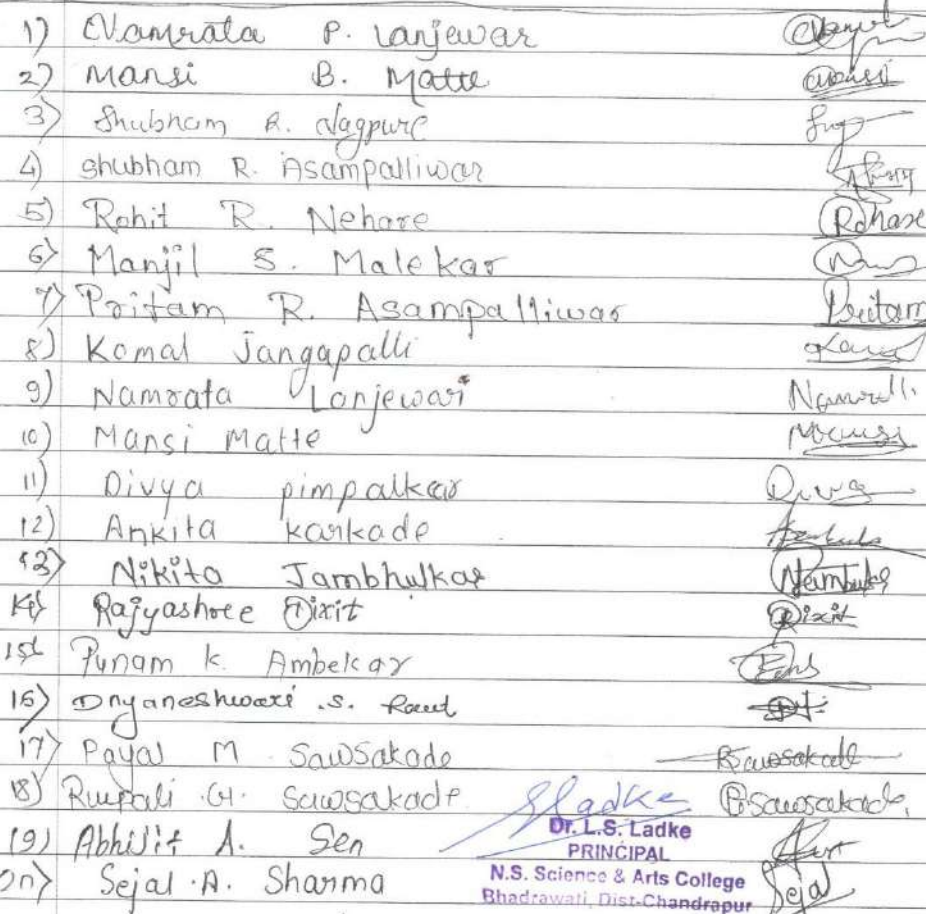 1) Namrata P. Lanjewar
2) Mansi B. Matte Mansi
3) Shubham R. Nagpure
4) Shubham R. Asampalliwar
5) Rohit R. Nehare
6) Manjil S. Malekar
7) Pritam R. Asampalliwar Pritam
8) Komal Jangapalli
9) Namrata Lanjewari
10) Mansi Matte Mansi
11) Divya pimpalkar Divya
12) Ankita karkade
13) Nikita Jambhulkar
14) Rajyashree Dixit Dixit
15) Punam K. Ambekar
16) Dnyaneshwari .S. Raut
17) Payal M Sawsakade PSawsakade
18) Rupali .G. Sawsakade RSawsakade
19) Abhijit A. Sen
20) Sejal .A. Sharma Sejal
SLadke
Dr. L.S. Ladke
PRINCIPAL
N.S. Science & Arts College
Bhadrawati, Dist-Chandrapur